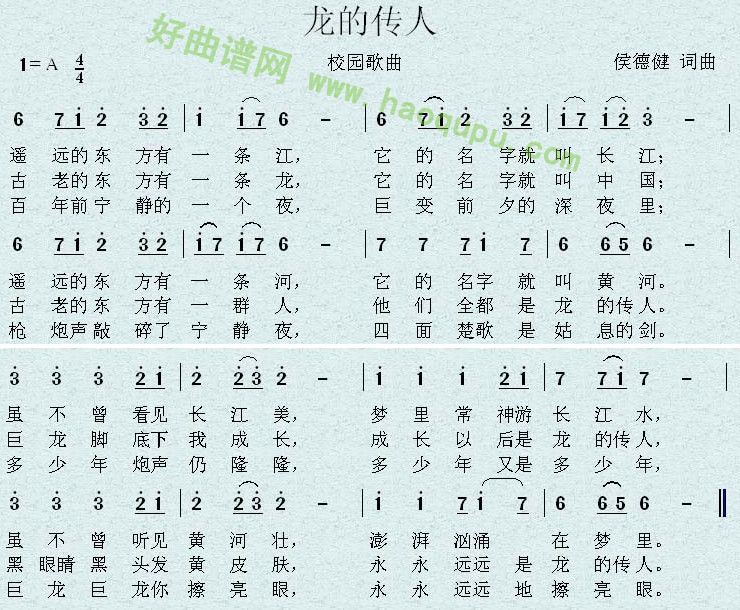 龙的传人
好曲谱网
www.haoqupu.com
1=A 4/4 校园歌曲 侯德健 词曲
6 71 2 32 | 1 17 6 - | 6 71 2 32 | 17 12 3 - |
遥 远的东 方有 一 条 江， 它 的 名 字就 叫 长 江；
古 老的东 方有 一 条 龙， 它 的 名 字就 叫 中 国；
百 年前宁 静的 一 个 夜， 巨 变 前 夕的 深 夜 里；
6 71 2 32 | 17 17 6 - | 7 7 71 7 | 6 65 6 - |
遥 远的东 方有 一 条 河， 它 的 名字 就 叫 黄 河。
古 老的东 方有 一 群 人， 他 们 全都 是 龙 的传人。
枪 炮声敲 碎了 宁 静 夜， 四 面 楚歌 是 姑 息的剑。
3 3 3 21 | 2 23 2 - | 1 1 1 21 | 7 71 7 - |
虽 不 曾 看见 长 江 美， 梦 里 常 神游 长 江 水，
巨 龙 脚 底下 我 成 长， 成 长 以 后是 龙 的传人，
多 少 年 炮声 仍 隆 隆， 多 少 年 又是 多 少 年，
3 3 3 21 | 2 23 2 - | 1 1 71 7 | 6 65 6 - ‖
虽 不 曾 听见 黄 河 壮， 澎 湃 汹涌 在 梦 里。
黑 眼睛 黑 头发 黄 皮 肤， 永 永 远远 是 龙 的传人。
巨 龙 巨 龙你 擦 亮 眼， 永 永 远远 地 擦 亮 眼。